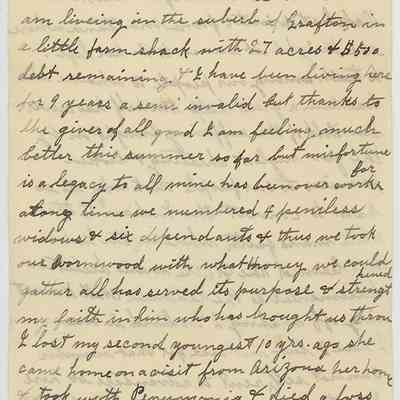 am liveing in the suburb of Grafton in
a little farm shack with 27 acres & $500
debt remaining & I have been living here
for 9 years a semi invalid but thanks to
the giver of all good I am feeling much
better this summer so far but misfortune
is a legacy to all mine has been over work for
a long time we numbered 4 peniless
widows & six dependants & thus we took
our wormwood with what honey we could
gather all has served its purpose &
my faith in him who has brought us throu
I lost my second youngest 10 yrs. ago she
came home on a visit from Arizona her home
& took with Pneumonia & died a loss